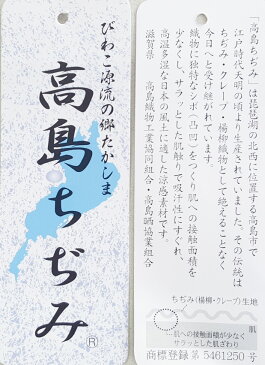 びわこ源流の郷たかしま
高島ちぢみ
®
「高島ちぢみ」は琵琶湖の北西に位置する高島市で
江戸時代天明の頃より生産されていました。その伝統は
今日へと受け継がれています。
ちぢみ・クレープ・楊柳織物として絶えることなく
織物に独特なシボ(凸凹)をつくり肌への接触面積を
少なくし、サラッとした肌触りで吸汗性にすぐれ、
高温多湿な日本の風土に適した涼感素材です。
滋賀県 高島織物工業協同組合・高島晒協業組合
ちぢみ(楊柳・クレープ)生地
肌
肌への接触面積が少なく
サラッとした肌ざわり
商標登録第 5461250 号